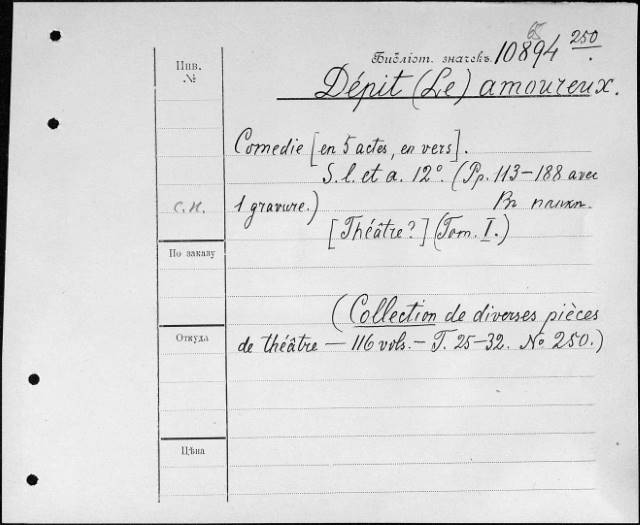 65
Инв. №
Библіот. значекъ. 10894 250
Dépit (Le) amoureux.
Comedie [en 5 actes, en vers].
S. l. et a. 12°. (Pp. 113-188 avec
С.К. 1 gravure.) Въ папкѣ.
[Théâtre?] (Tom. I.)
По заказу
(Collection de diverses pièces
Откуда
de théâtre — 116 vols. — T. 25-32. № 250.)
Цѣна